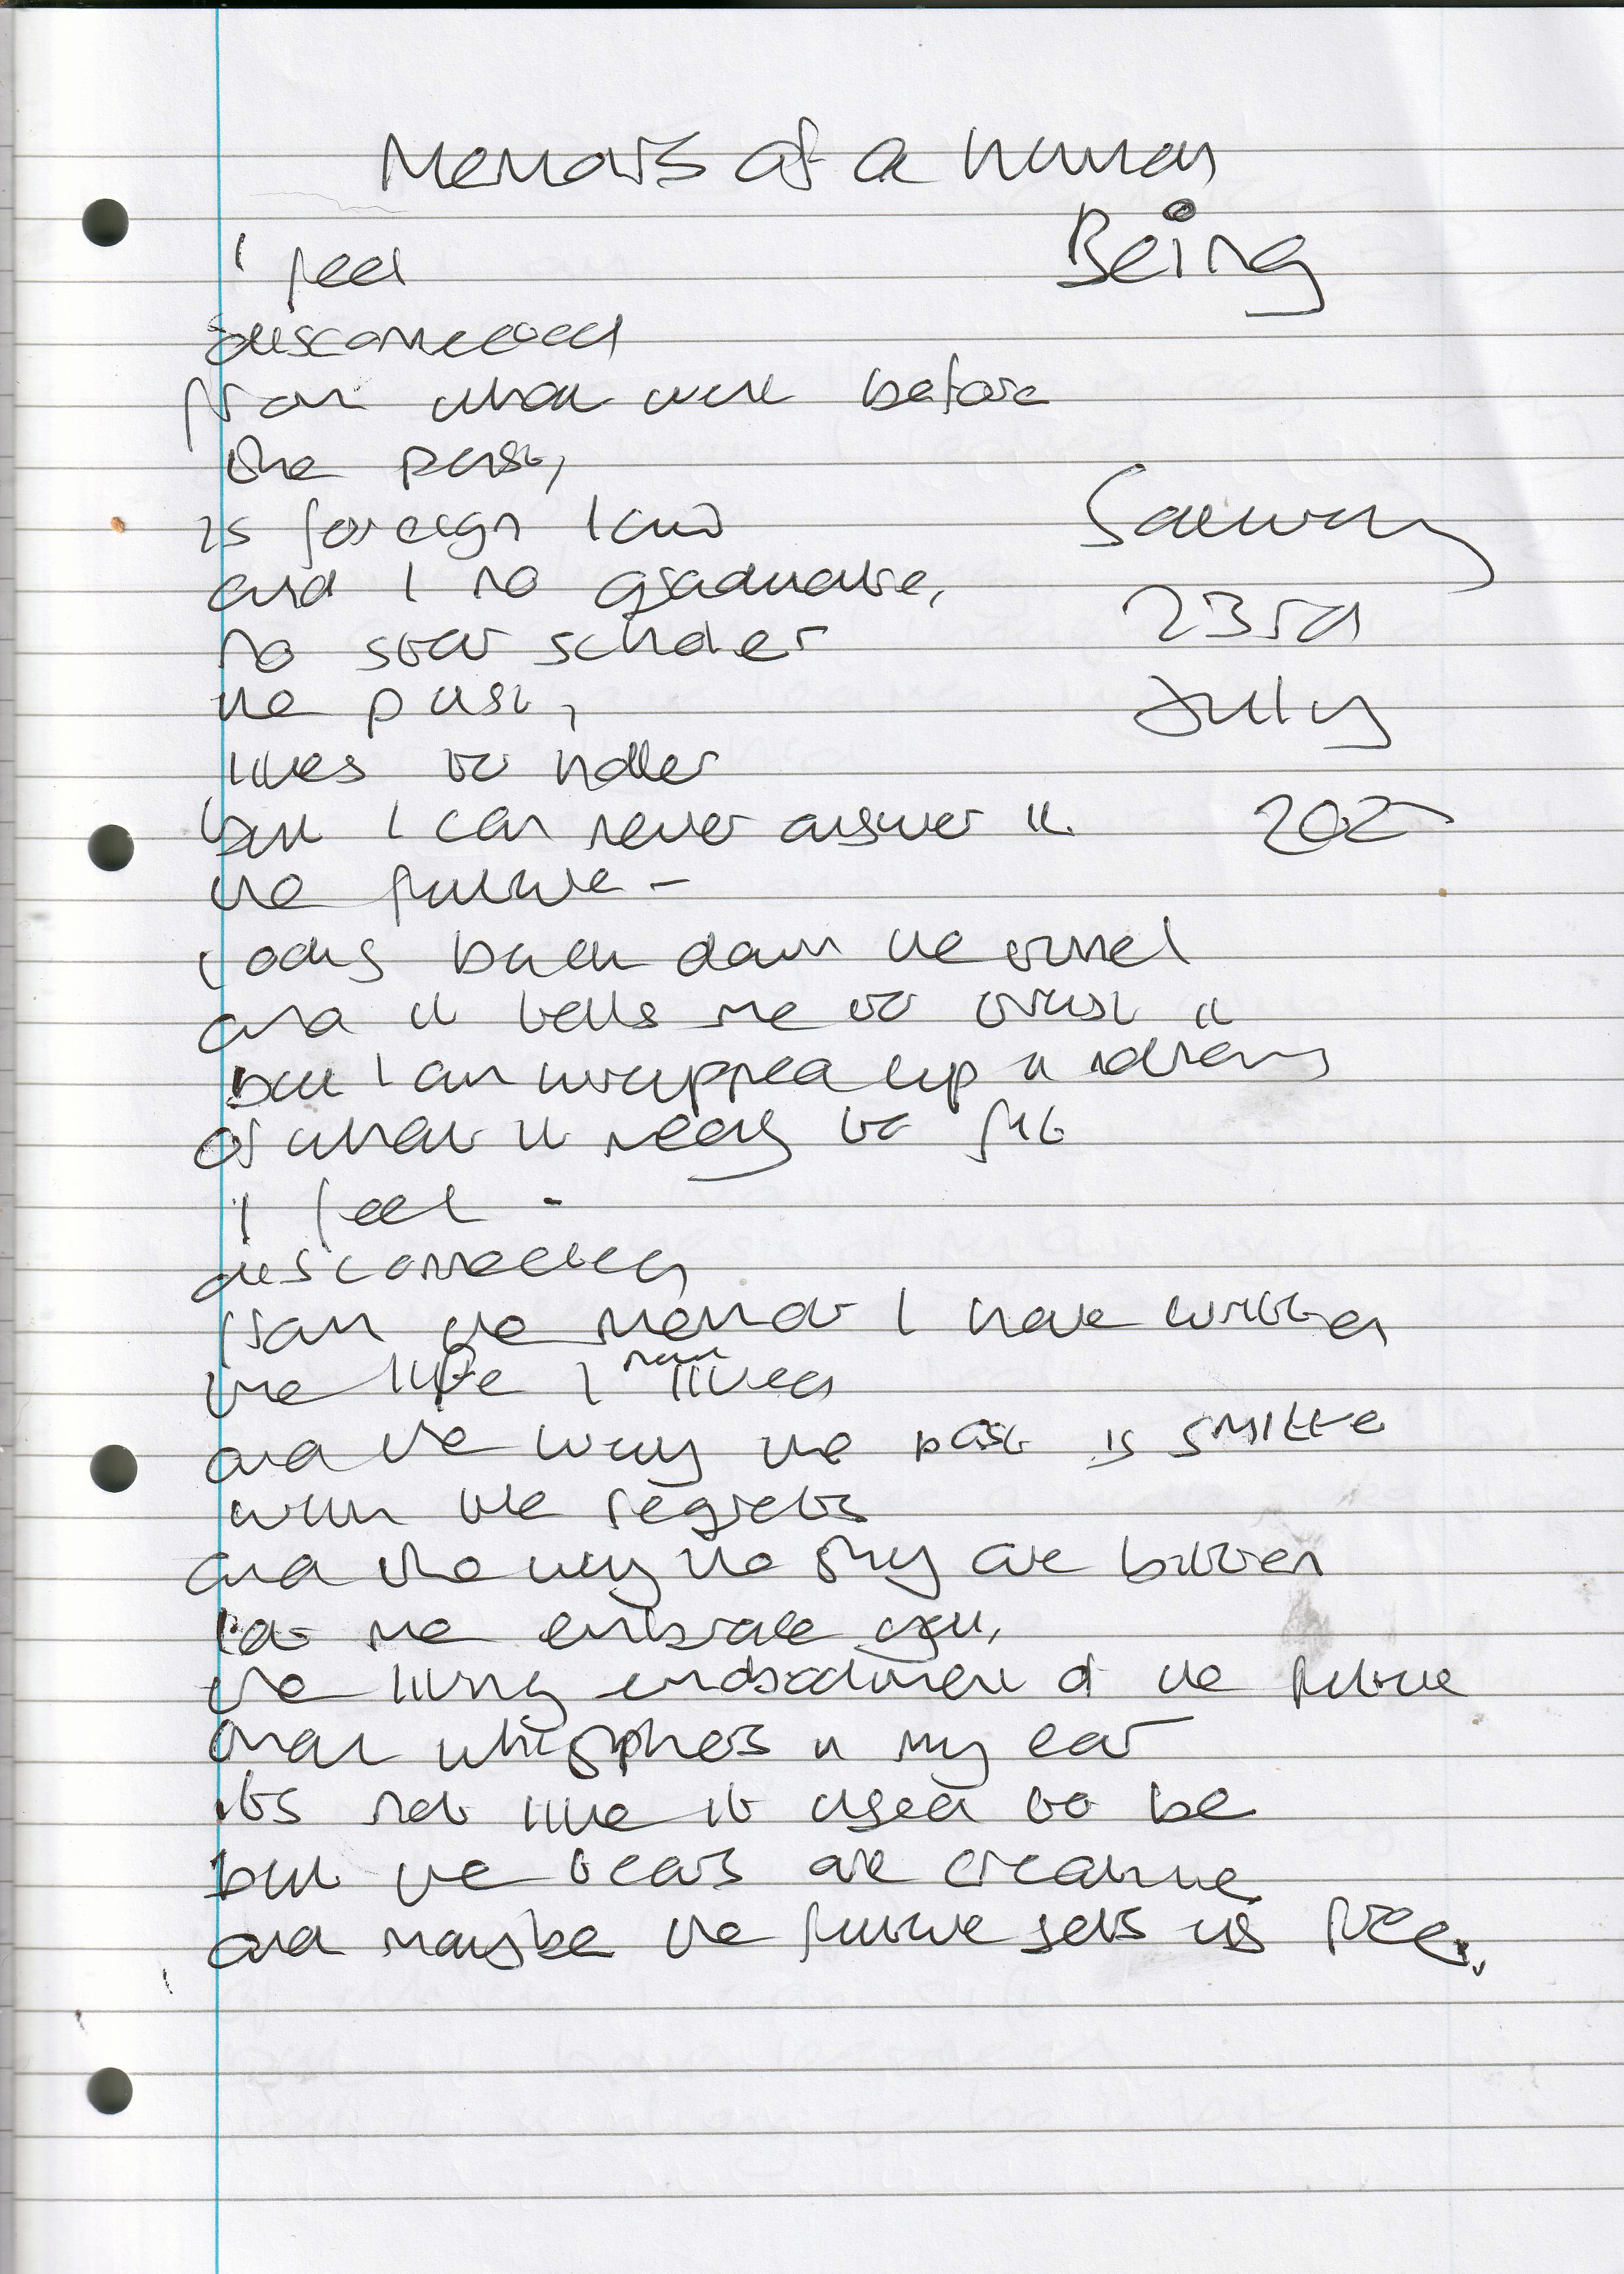 Memoirs of a human
Being
I feel
disconnected
from what were before
the past,
is foreign land
and I no graduate,
no star scholer
the past,
likes to holler
but I can never answer it
the future –
looks back down the tunnel
and it tells me to trust it
but I am wrapped up in
of what it really to
I feel -
disconnected
from the memoir I have written
the life I have lived
and the way the past is smitte
with the regrets
and the way the sky are bitten
let me embrace you,
the living embodiment of the future
that whisphers in my ear
its not like it used to be
but the tears are creative
and maybe the future sets us free.
Saturday
23rd
July
202